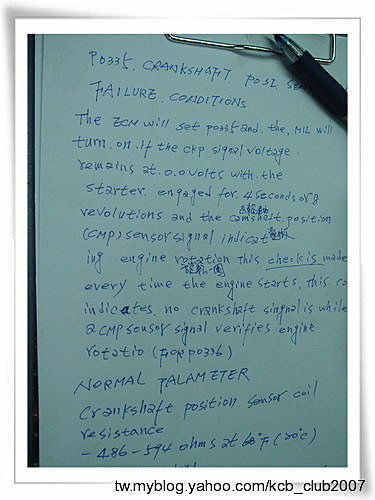 P0335. CRANKSHAFT POSI. SE
FAILURE CONDITIONS
The ECM will set P0335 and the MIL will
turn on if the CKP signal voltage
remains at 0.0 volts with the
starter engaged for 4 seconds or 8
revolutions and the camshaft position
(CMP) sensor signal indicat
ing engine rotation This check is made
every time the engine starts. This co
indicates no crankshaft singnal is while
a CMP sensor signal verifies engine
rotatio (For P0336)
NORMAL PALAMETER
Crankshaft position sensor coil
resistance
- 486 - 594 ohms at 68°F (20°C)
tw.myblog.yahoo.com/kcb_club2007